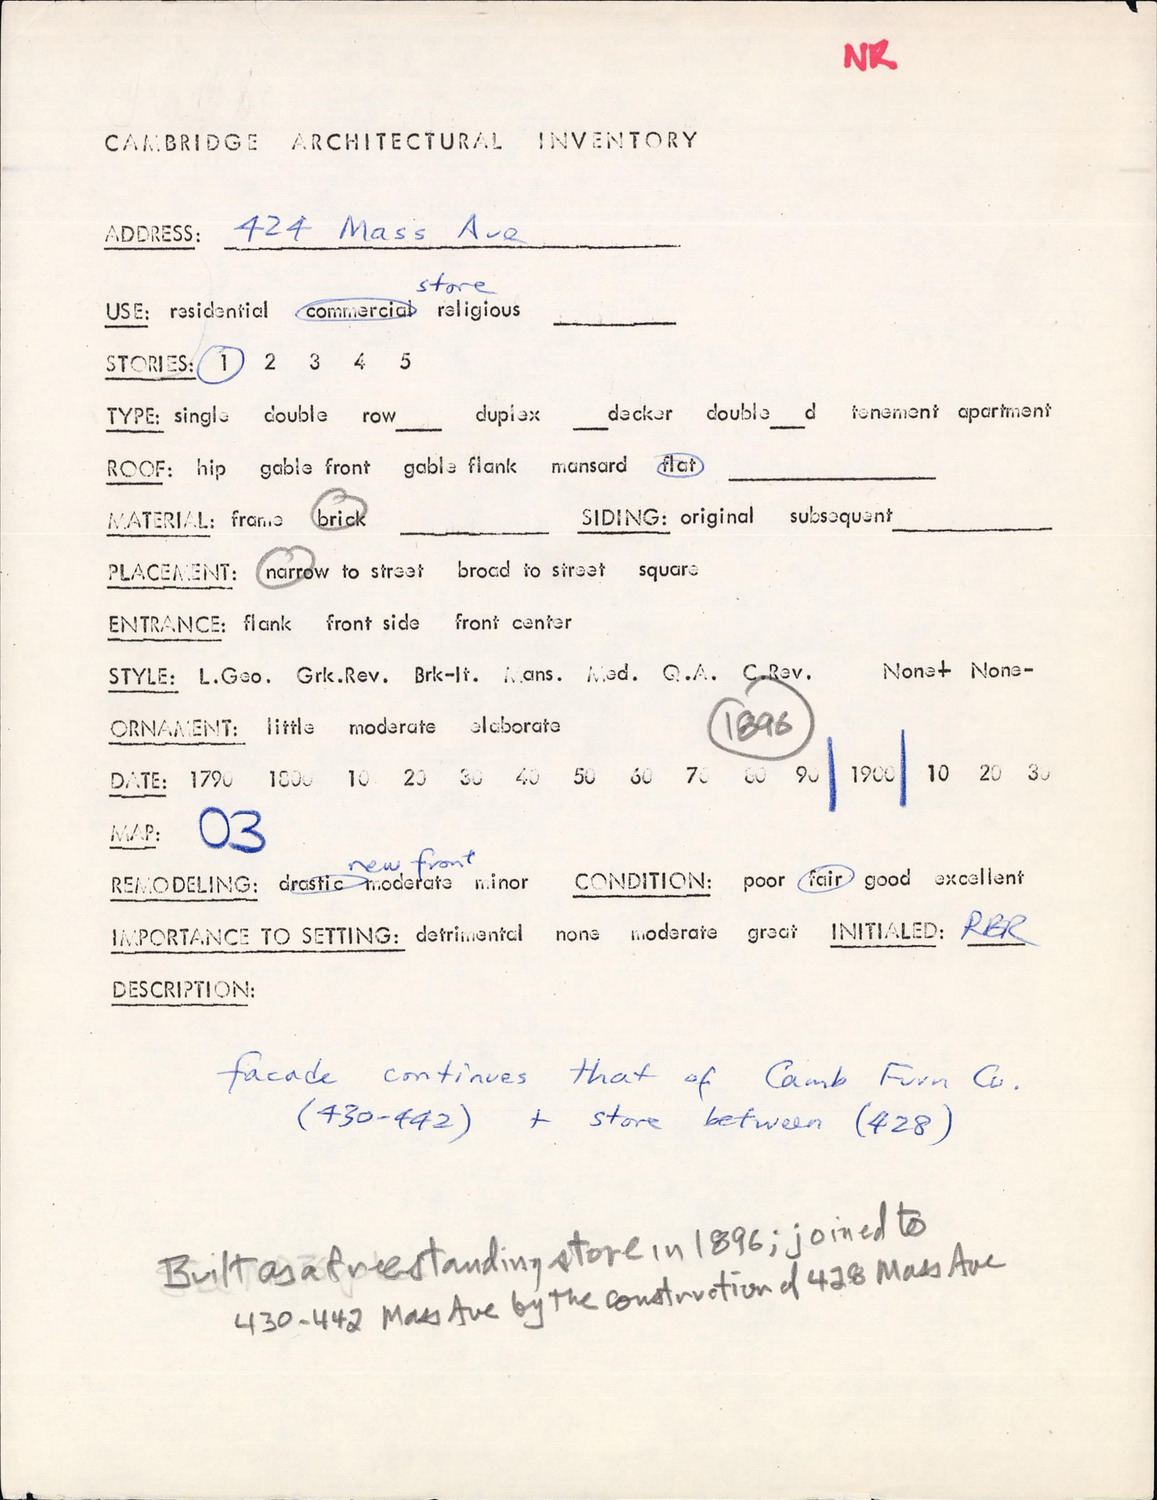 NR
CAMBRIDGE ARCHITECTURAL INVENTORY
ADDRESS: 424 Mass Ave
store
USE: residential commercial religious ____
STORIES: 1 2 3 4 5
TYPE: single double row___ duplex ___decker double___d tenement apartment
ROOF: hip gable front gable flank mansard flat ____
MATERIAL: frame brick ____ SIDING: original subsequent____
PLACEMENT: narrow to street broad to street square
ENTRANCE: flank front side front center
STYLE: L.Geo. Grk.Rev. Brk-It. Mans. Med. Q.A. C.Rev. None+ None-
ORNAMENT: little moderate elaborate 1896
DATE: 1790 1800 10 20 30 40 50 60 70 80 90 1900 10 20 30
MAP: 03
new front
REMODELING: drastic moderate minor CONDITION: poor fair good excellent
IMPORTANCE TO SETTING: detrimental none moderate great INITIALED: RBR
DESCRIPTION:
facade continues that of Camb Furn Co.
(430-442) + store between (428)
Built as a freestanding store in 1896; joined to
430-442 Mass Ave by the construction of 428 Mass Ave